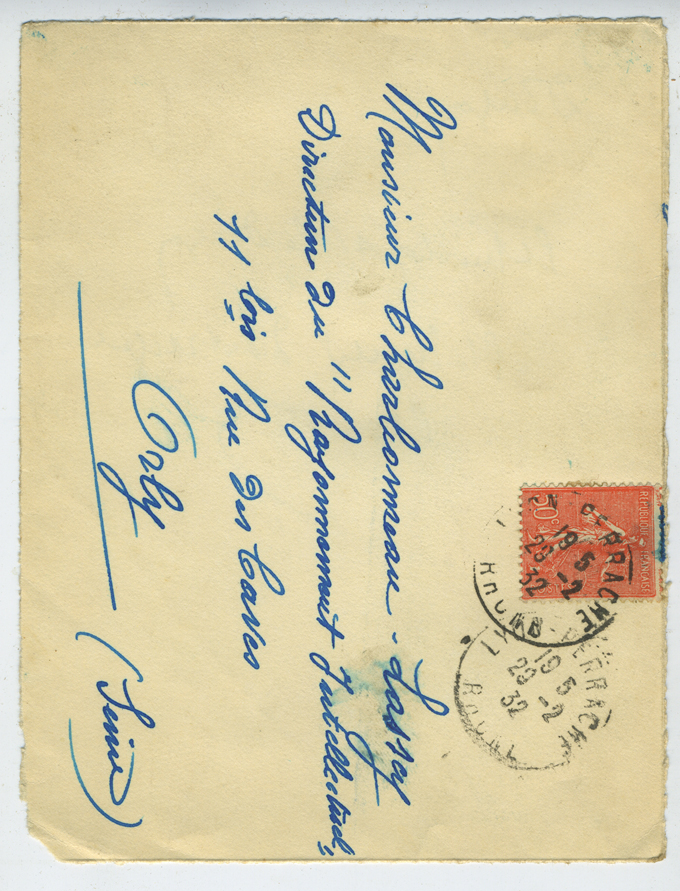 Monsieur Charbonneau-Lassay
Directeur du "Rayonnement Intellectuel"
11 bis Rue des Caves
Orly
(Seine)
REPUBLIQUE FRANÇAISE
50c
LYON-PERRACHE
19 5
29 -2
32
RHONE
LYON-PERRACHE
19 5
29 -2
32
RHONE